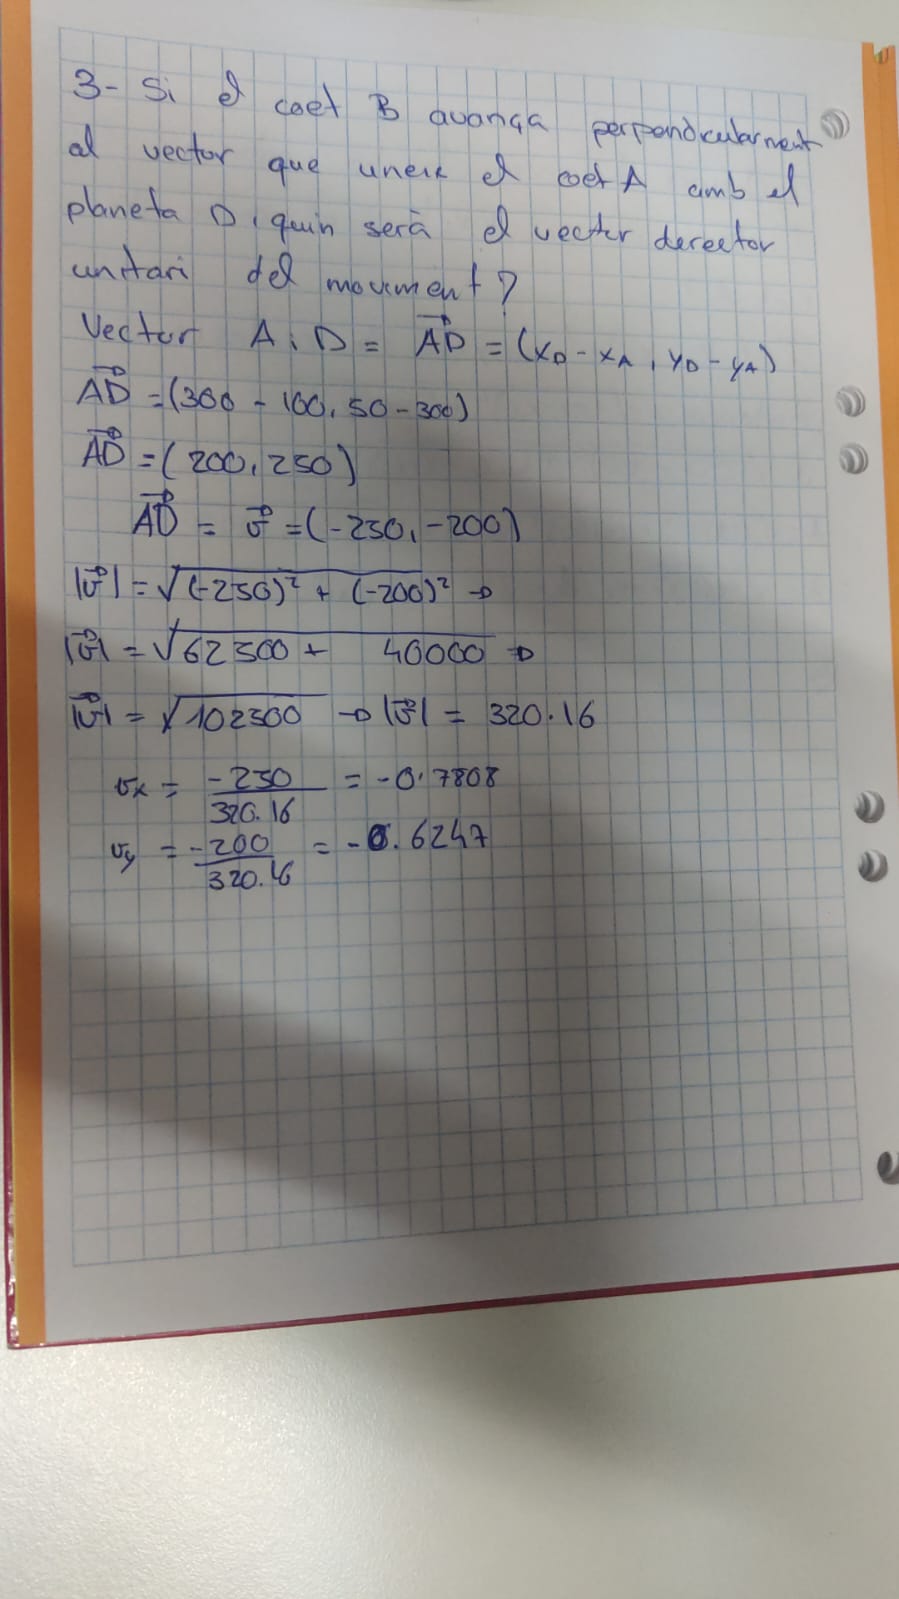 3- Si el coet B avança perpendicularment
al vector que uneix el coet A amb el
planeta D, quin serà el vector derector
unitari del moviment?
Vector A i D = AD = (xD - xA, yD - yA)
AD = (300 - 100, 50 - 300)
AD = (200, 250)
AD = v = (-250, -200)
|v| = √(-250)² + (-200)² →
|v| = √62500 + 40000 →
|v| = √102500 → |v| = 320.16
vx = -250/320.16 = -0.7808
vy = -200/320.16 = -0.6247